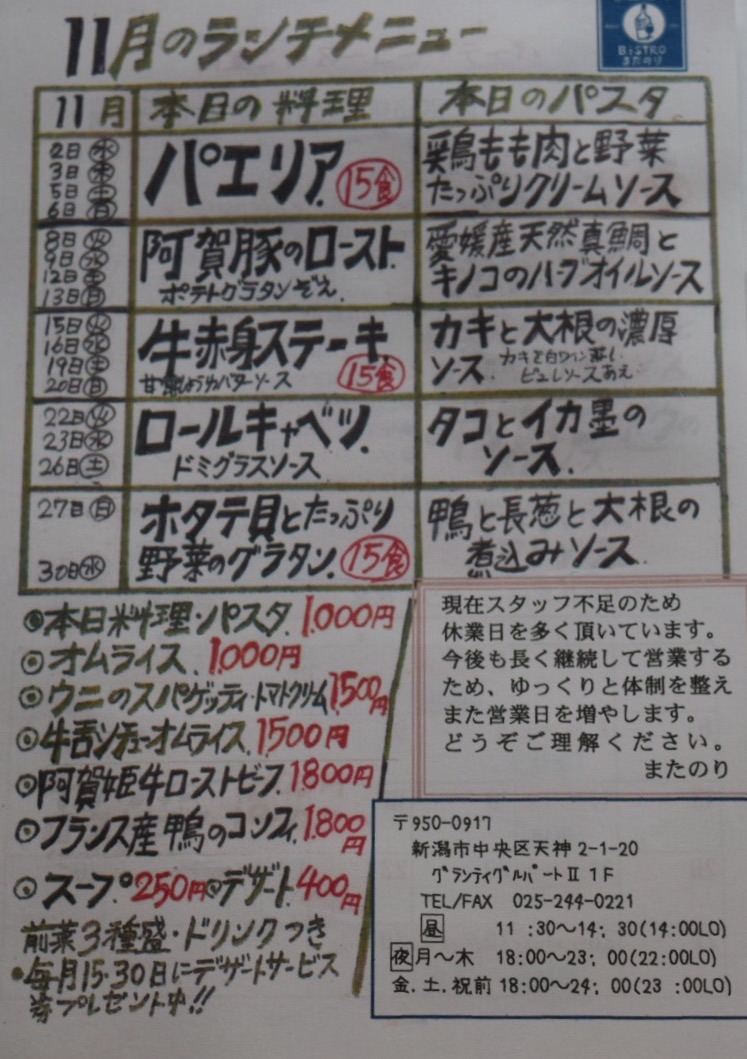 11月のランチメニュー
BISTRO
またのり
11月 本日の料理 本日のパスタ
2日㊌
3日㊍
5日㊏
6日㊐
パエリア 15食
鶏もも肉と野菜
たっぷりクリームソース
8日㊋
9日㊌
12日㊏
13日㊐
阿賀豚のロースト
ポテトグラタンぞえ
愛媛産天然真鯛と
キノコのハーブオイルソース
15日㊋
16日㊌
19日㊏
20日㊐
牛赤身ステーキ 15食
バターソース
カキと大根の濃厚
ソース カキを白ワイン蒸し
ピュレソースあえ
22日㊋
23日㊌
26日㊏
ロールキャベツ
ドミグラスソース
タコとイカ墨の
ソース
27日㊐
30日㊌
ホタテ貝とたっぷり
野菜のグラタン 15食
鴨と長葱と大根の
煮込みソース
◎本日料理・パスタ 1.000円
◎オムライス 1.000円
◎ウニのスパゲッティ・トマトクリーム 1,500円
◎牛舌シチューオムライス 1500円
◎阿賀姫牛ローストビーフ 1.800円
◎フランス産鴨のコンフィ 1.800円
◎スープ 250円 ◎デザート 400円
前菜3種盛・ドリンクつき
•毎月15・30日にデザートサービス
券プレゼント中!!
現在スタッフ不足のため
休業日を多く頂いています。
今後も長く継続して営業する
ため、ゆっくりと体制を整え
また営業日を増やします。
どうぞご理解ください。
またのり
〒950-0917
新潟市中央区天神2-1-20
グランティグルパートⅡ 1F
TEL/FAX 025-244-0221
昼 11:30～14:30(14:00LO)
夜月～木 18:00～23:00(22:00LO)
金.土.祝前 18:00～24:00(23:00LO)